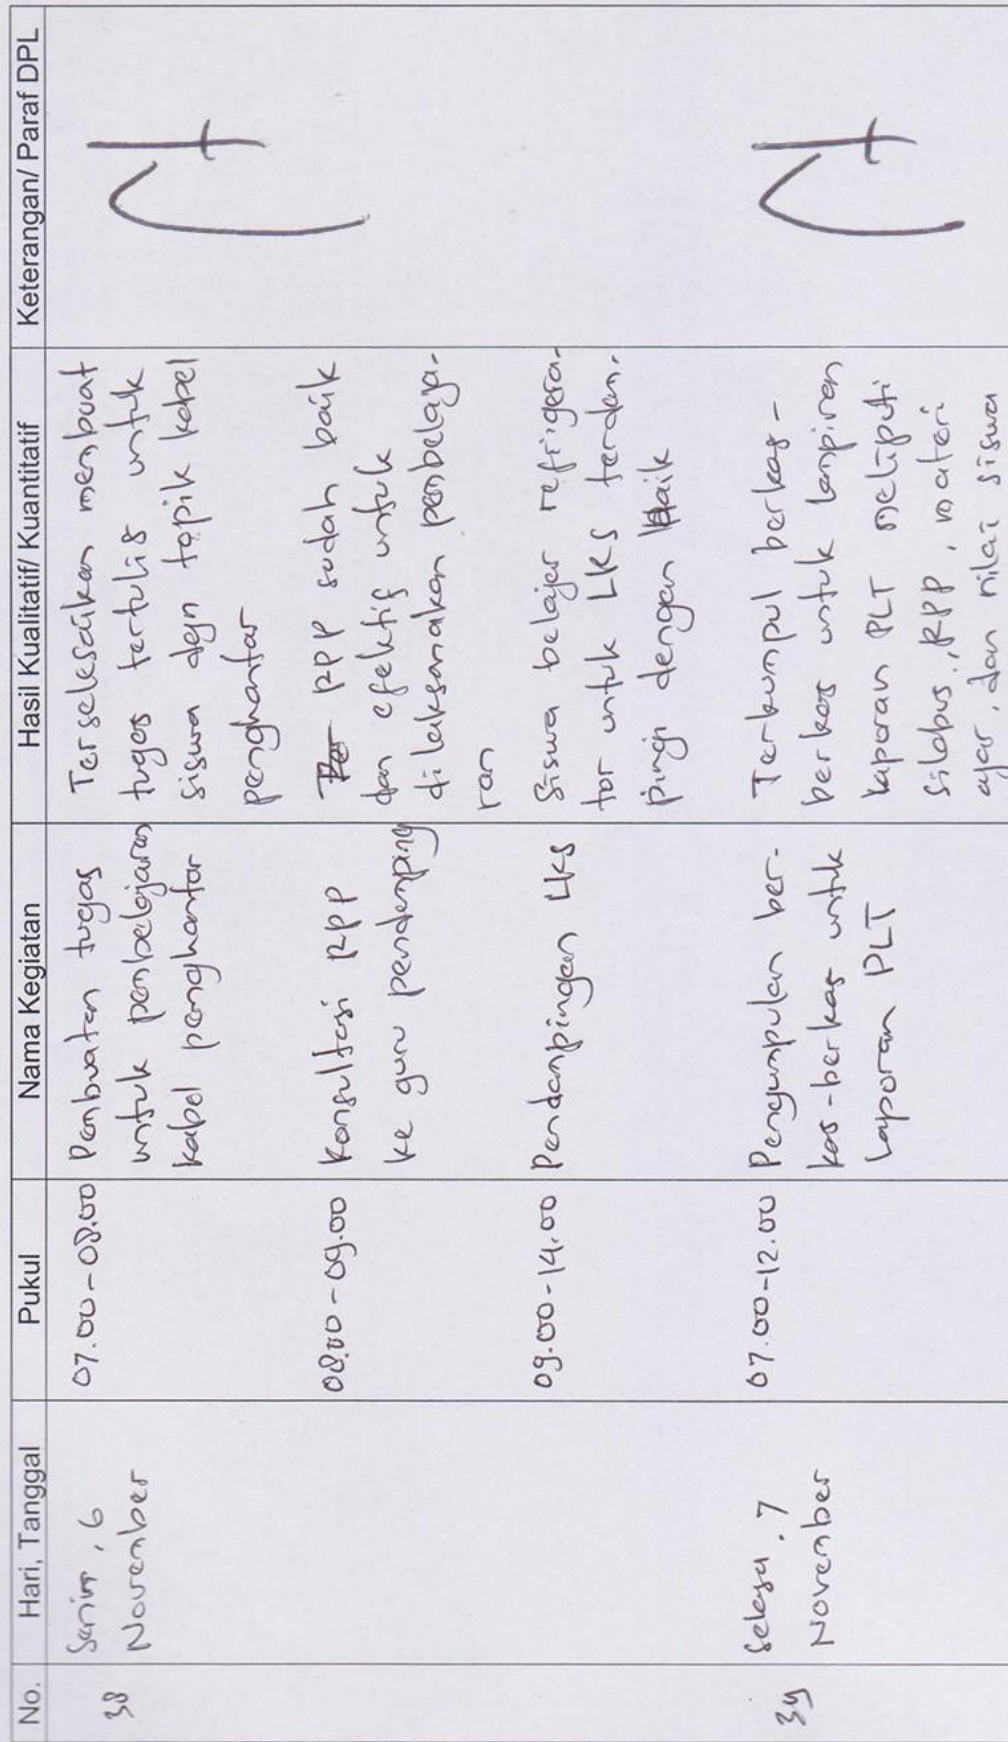 No.
Hari, Tanggal
Pukul
Nama Kegiatan
Hasil Kualitatif/ Kuantitatif
Keterangan/ Paraf DPL
38
Senin, 6
November
07.00-08.00
Pembuatan tugas
untuk pembelajaran
kabel penghantar
Terselesaikan membuat
tugas tertulis untuk
siswa dgn topik kabel
penghantar
08.00-09.00
Konsultasi RPP
ke guru pendamping
RPP sudah baik
dan efektif untuk
dilaksanakan pembelaja-
ran
09.00-14.00
Pendampingan LKS
Siswa belajar refrigera-
tor untuk LKS terdam-
pingi dengan baik
39
Selasa, 7
November
07.00-12.00
Pengumpulan ber-
kas-berkas untuk
Laporan PLT
Terkumpul berkas-
berkas untuk lampiran
laporan PLT meliputi
silabus, RPP, materi
ajar, dan nilai siswa